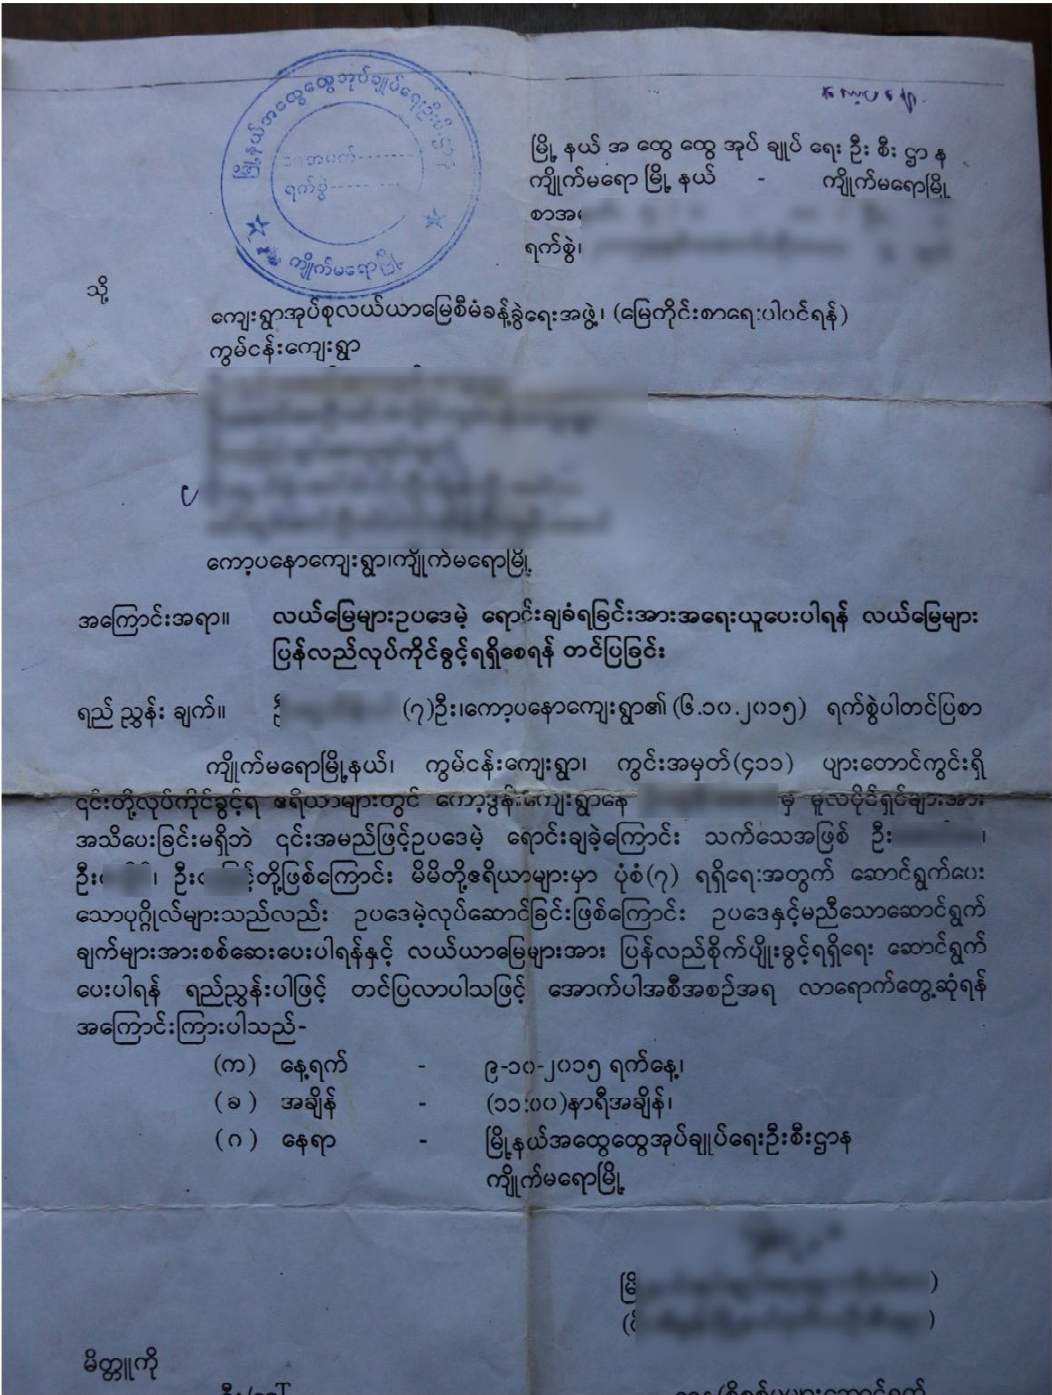 မြို့နယ်အထွေထွေအုပ်ချုပ်ရေးဦးစီးဌာန
ရက်စွဲ
ကျိုက်မရောမြို့
မြို့နယ်အထွေထွေအုပ်ချုပ်ရေးဦးစီးဌာန
ကျိုက်မရောမြို့နယ် - ကျိုက်မရောမြို့
စာအ
ရက်စွဲ၊
သို့
ကျေးရွာအုပ်စုလယ်ယာမြေစီမံခန့်ခွဲရေးအဖွဲ့၊ (မြေတိုင်းစာရေးပါဝင်ရန်)
ကွမ်ငန်းကျေးရွာ
ကော့ပနောကျေးရွာ၊ကျိုက်မရောမြို့
အကြောင်းအရာ။ လယ်မြေများဥပဒေမဲ့ ရောင်းချခံရခြင်းအားအရေးယူပေးပါရန် လယ်မြေများ
ပြန်လည်လုပ်ကိုင်ခွင့်ရရှိစေရန် တင်ပြခြင်း
ရည် ညွှန်း ချက်။ (၇)ဦး၊ကော့ပနောကျေးရွာ၏ (၆.၁၀.၂၀၁၅) ရက်စွဲပါတင်ပြစာ
ကျိုက်မရောမြို့နယ်၊ ကွမ်ငန်းကျေးရွာ၊ ကွင်းအမှတ်(၄၁၁) ပျားတောင်ကွင်းရှိ
၎င်းတို့လုပ်ကိုင်ခွင့်ရ ဧရိယာများတွင် ကော့ဒွန်းကျေးရွာနေ မှ မူလပိုင်ရှင်များအား
အသိပေးခြင်းမရှိဘဲ ၎င်းအမည်ဖြင့်ဥပဒေမဲ့ ရောင်းချခဲ့ကြောင်း သက်သေအဖြစ် ဦး ၊
ဦး ၊ ဦး တို့ဖြစ်ကြောင်း မိမိတို့ဧရိယာများမှာ ပုံစံ(၇) ရရှိရေးအတွက် ဆောင်ရွက်ပေး
သောပုဂ္ဂိုလ်များသည်လည်း ဥပဒေမဲ့လုပ်ဆောင်ခြင်းဖြစ်ကြောင်း ဥပဒေနှင့်မညီသောဆောင်ရွက်
ချက်များအားစစ်ဆေးပေးပါရန်နှင့် လယ်ယာမြေများအား ပြန်လည်စိုက်ပျိုးခွင့်ရရှိရေး ဆောင်ရွက်
ပေးပါရန် ရည်ညွှန်းပါဖြင့် တင်ပြလာပါသဖြင့် အောက်ပါအစီအစဉ်အရ လာရောက်တွေ့ဆုံရန်
အကြောင်းကြားပါသည်-
(က) နေ့ရက် - ၉-၁၀-၂၀၁၅ ရက်နေ့၊
(ခ) အချိန် - (၁၁:၀၀)နာရီအချိန်၊
(ဂ) နေရာ - မြို့နယ်အထွေထွေအုပ်ချုပ်ရေးဦးစီးဌာန
ကျိုက်မရောမြို့
မိတ္တူကို